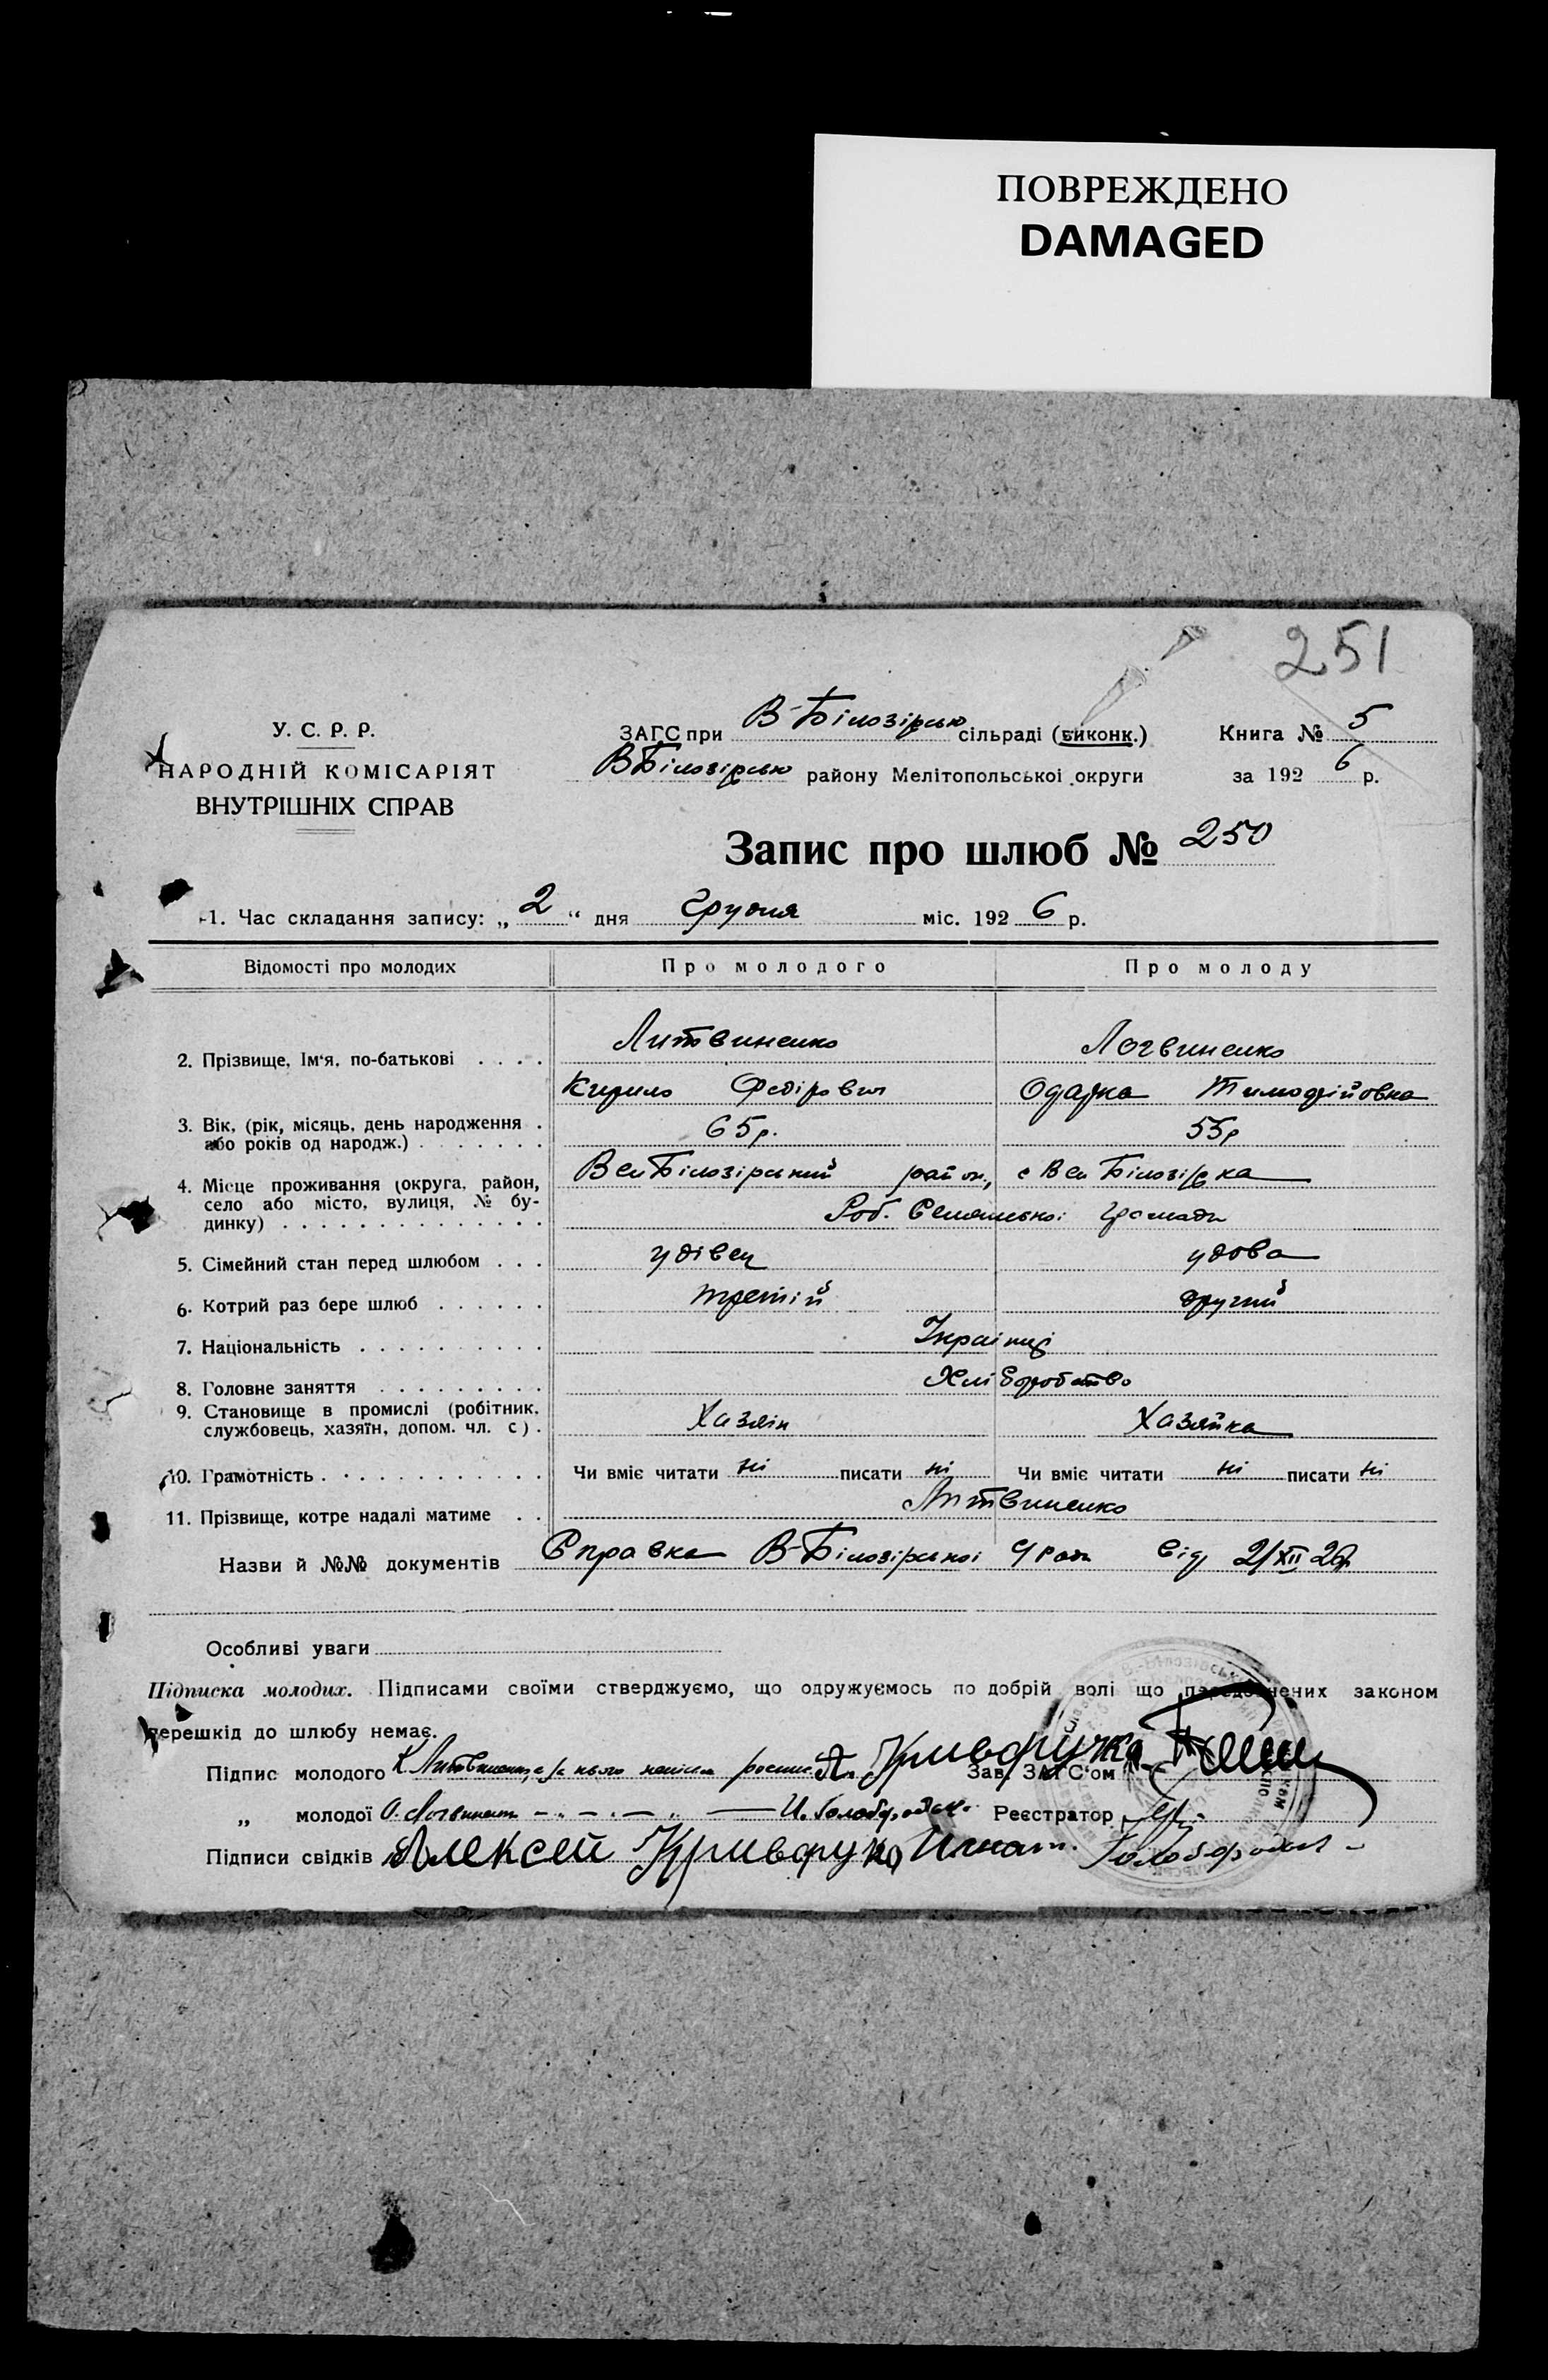 ПОВРЕЖДЕНО
DAMAGED
251
У. С. Р. Р.
НАРОДНІЙ КОМІСАРІЯТ
ВНУТРІШНІХ СПРАВ
ЗАГС при В-Білозірсько сільраді (виконк.) Книга № 5
ВБілозірсько району Мелітопольської округи за 1926 р.
Запис про шлюб № 250
1. Час складання запису: „2“ дня Грудня міс. 1926 р.
Відомості про молодих Про молодого Про молоду
2. Прізвище, Ім'я, по-батькові . . . . Литвиненко Логвиненко
Кирило Федірович Одарка Тимофійовна
3. Вік, (рік, місяць, день народження .
або років од народж.) . . . . . . . 65р. 55р
4. Місце проживання (округа, район,
село або місто, вулиця, № бу-
динку) . . . . . . . . . . . . . .
Вел Білозірський район, с Вел Білозірка
Роб. Селянської громади
5. Сімейний стан перед шлюбом . . . удівец удова
6. Котрий раз бере шлюб . . . . . . третій другий
7. Національність . . . . . . . . . . Українці
8. Головне заняття . . . . . . . . . Хліборобство
9. Становище в промислі (робітник,
службовець, хазяїн, допом. чл. с) . Хазяін Хазяйка
10. Грамотність . . . . . . . . . . . . Чи вміє читати ні писати ні Чи вміє читати ні писати ні
11. Прізвище, котре надалі матиме . . Литвиненко
Назви й №№ документів Справка В-Білозірської С/Ради від 2/XII 26р
Особливі уваги
Підписка молодих. Підписами своїми стверджуємо, що одружуємось по добрій волі що передбачених законом
перешкід до шлюбу немає.
Підпис молодого К Литвиненко А. Кривобручко Зав. ЗАГС'ом
„ молодої О. Логвиненко И. Голобородько Реєстратор
Підписи свідків Алексей Игнат. Голобородько